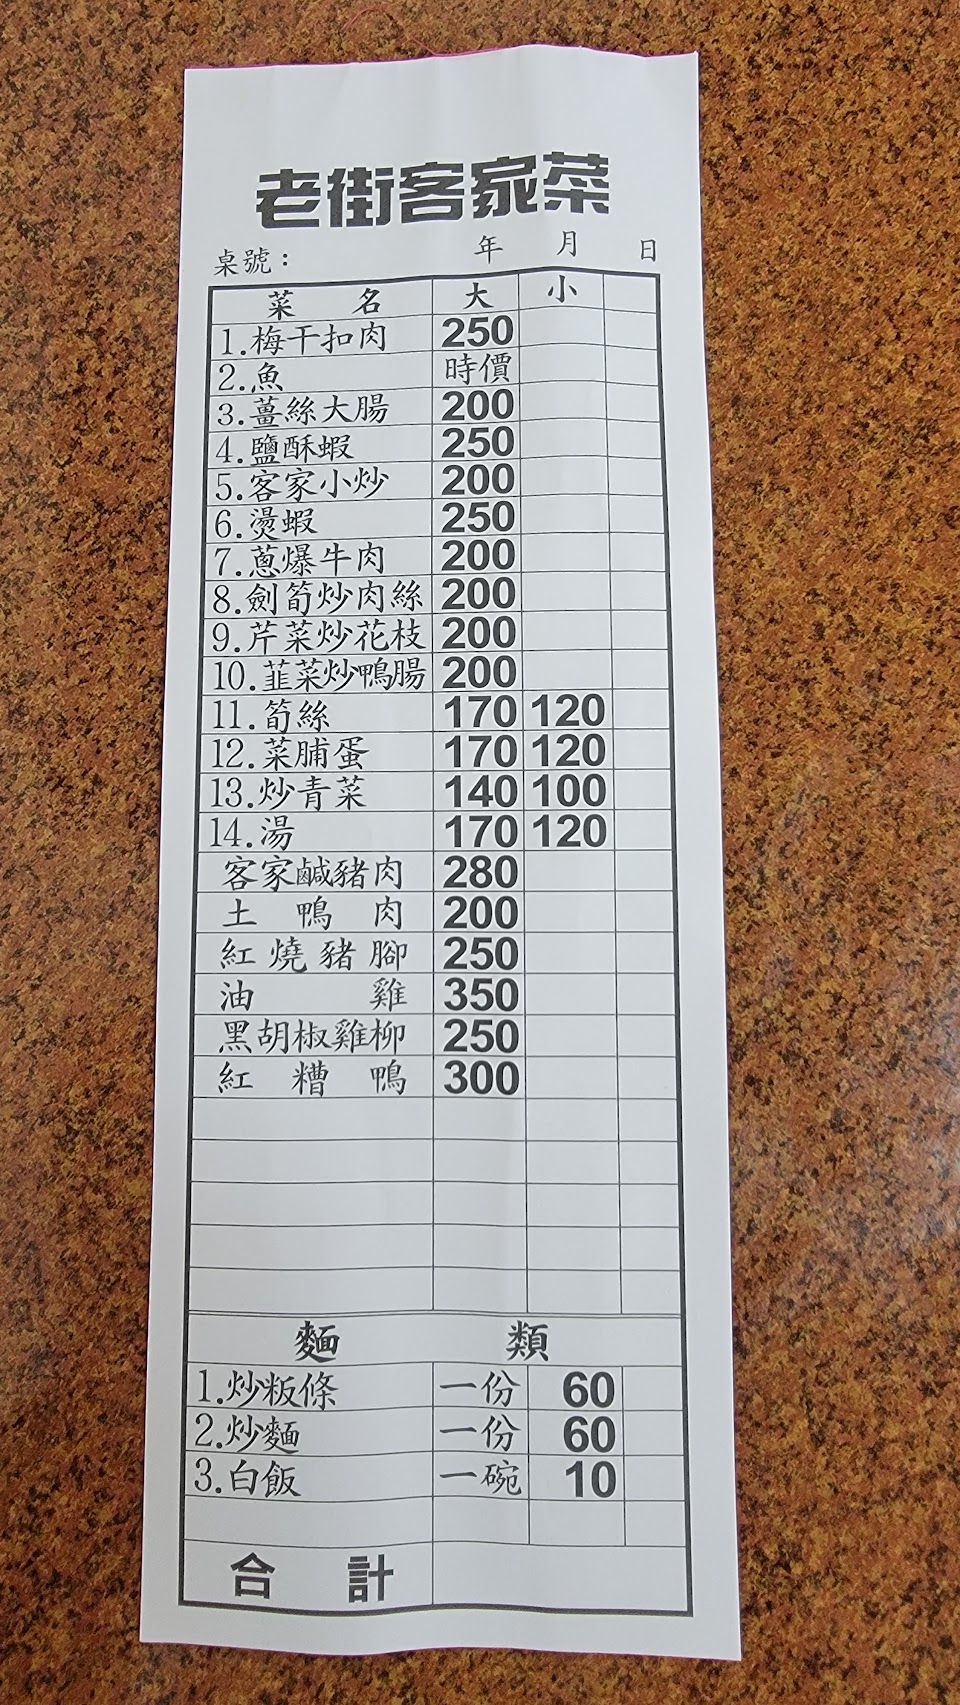 老街客家菜
桌號： 年 月 日
菜名 大 小
1.梅干扣肉 250
2.魚 時價
3.薑絲大腸 200
4.鹽酥蝦 250
5.客家小炒 200
6.燙蝦 250
7.蔥爆牛肉 200
8.劍筍炒肉絲 200
9.芹菜炒花枝 200
10.韮菜炒鴨腸 200
11.筍絲 170 120
12.菜脯蛋 170 120
13.炒青菜 140 100
14.湯 170 120
客家鹹豬肉 280
土鴨肉 200
紅燒豬腳 250
油雞 350
黑胡椒雞柳 250
紅糟鴨 300
麵類
1.炒粄條 一份 60
2.炒麵 一份 60
3.白飯 一碗 10
合計